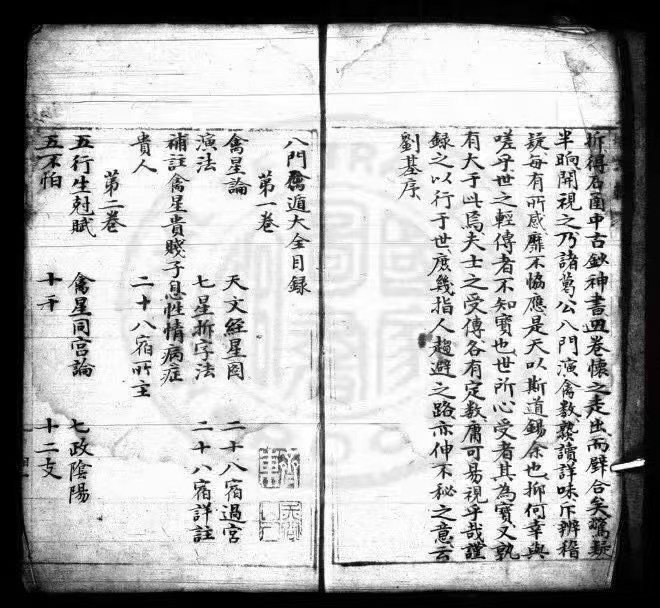 折得石函中古鈔神書四卷懷之走出而壁合矣驚疑
半晌開視之乃諸葛公八門演禽教襲讀詳味斥辨稽
疑每有所感靡不協應是天以斯道錫余也抑何幸與
嗟乎世之輕傳者不知寶也世所心受者其為寶又孰
有大于此焉夫士之受傳各有定数庸可易視乎哉謹
録之以行于世庶幾指人趨避之路亦伸不秘之意云
劉基序
八門禽遁大全目録
第一卷
禽星論 天文經星圖 二十八宿過宮
演法 七星拆字法 二十八宿詳註
補註禽星貴賤子息性情病症
貴人 二十八宿所主
第二卷
五行生尅賦 禽星同宮論 七政陰陽
五不怕 十干 十二支